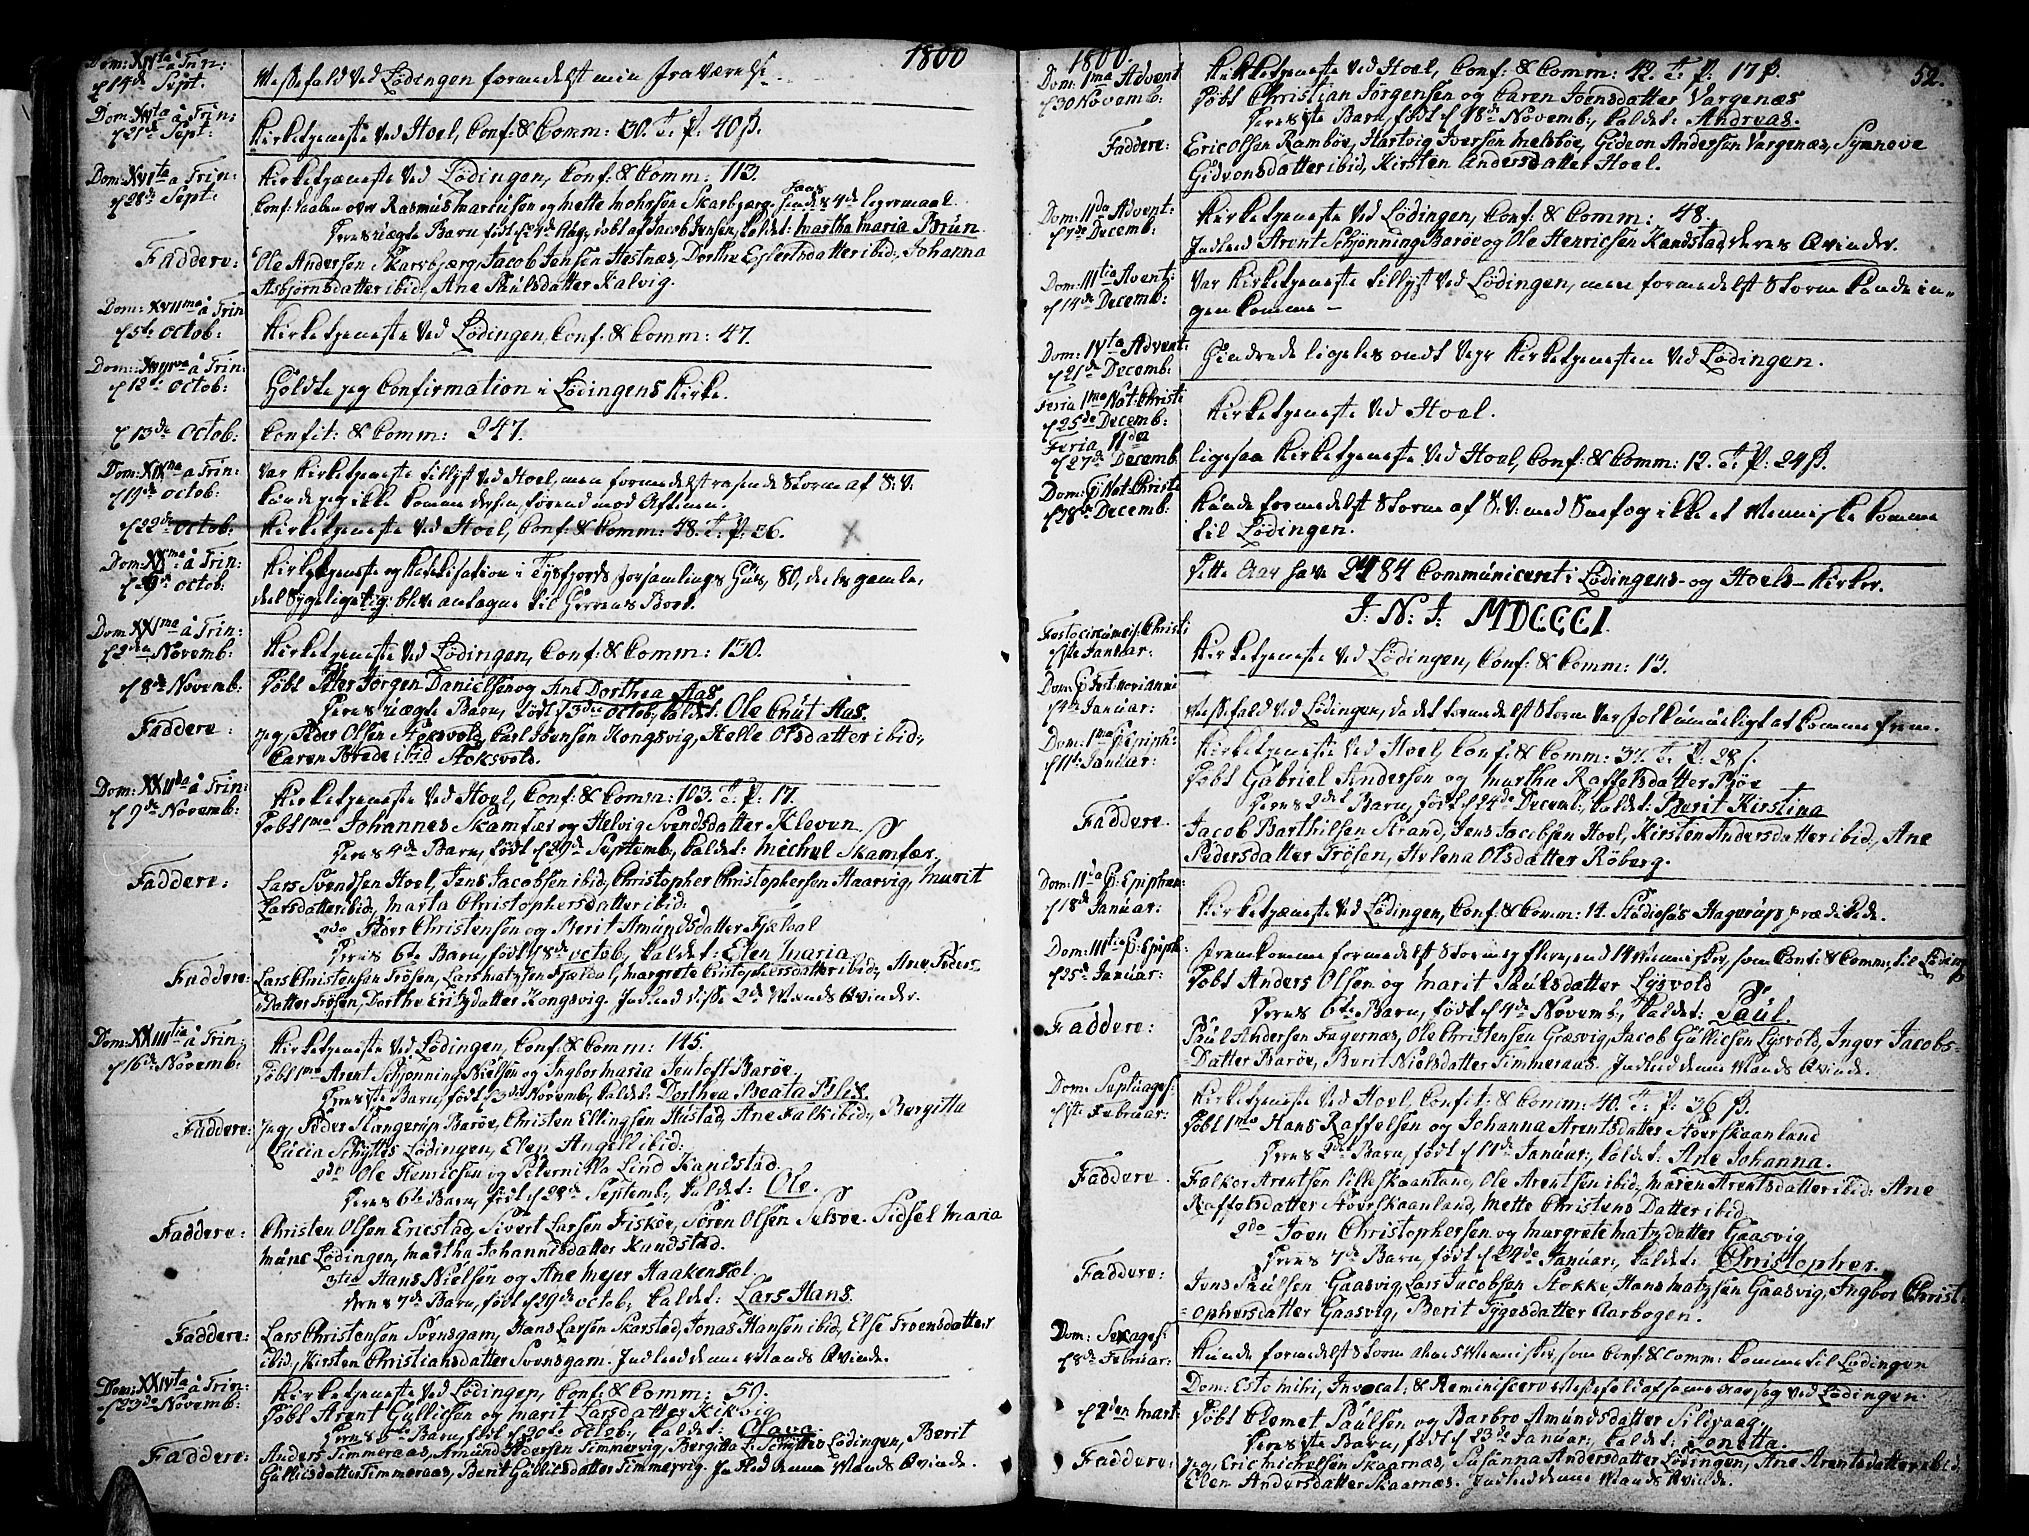 1800
Dom: XIVta à Trin:
d 14de Sept.
Messefald ved Lødingen formedelst min fraværelse.
Dom: XVta à Trin:
d 21de Sept:
Kirketjeneste ved Hoel, Conf: & Comm: 30. T. P. 40 ß.
Dom: XVIta à Trin:
d 28de Sept:
Kirketjeneste ved Lødingen, Conf: & Comm: 113.
Rasmus Marcusen og Mette Mohrsen Skarbjerg 4de legermaal.
Deres uægte Barn, født d 4de Aug, døbt af Jacob Jensen, kaldet: Martha Maria Brun
Faddere:
Ole Andersen Skarsbjerg, Jacob Jansen Hestnæs, Dorthe Eilertsdatter ibid:, Johanna
Asbjørnsdatter ibid:, Ane Paulsdatter Kalvig.
Dom: XVIIma à Trin
d 5te Octob:
Kirketjeneste ved Lødingen, Conf: & Comm: 47.
Dom: XVIIIva à Trin:
d 12te Octob:
Holdte jeg Confirmation i Lødingens Kirke.
d 13de Octob:
Confit: & Comm: 247.
Dom: XIXna à Trin:
d 19de Octob:
Var Kirketjeneste tillyst ved Hoel, men formedelst rasende Storm af S.V.
kunde jeg ikke komme dersen, førend mod Aftenen.
d 22de Octob:
Kirketjeneste ved Hoel, Conf: & Comm: 48. T. P. 36.
Dom: XXma: à Trin:
Octob:
Kirketjeneste og Katekisation i Tysfjords forsamlings Huus, 80, deels gamle,
deels sygelige bleve antagne til Herrens Bord.
Dom: XXIma à Trin:
d 2den Novemb:
Kirketjeneste ved Lødingen, Conf: & Comm: 130.
d 8de Novemb:
Døbt Peter Jørgen Danielsen og Ane Dorthea Aas
Deres uægte Barn, født d 3die Octob, kaldet: Ole Cnut Aas.
Faddere:
jeg, Peder Olsen Stoksvold, Carl Jørensen Kongsvig, Helle Olsdatter ibid:,
Caren Brede ibid Stoksvold.
Dom: XXIIda à Trin:
d 9de Novemb:
Kirketjeneste ved Hoel, Conf: & Comm: 103. T. P. 17.
Døbt 1mo Johannes Skamfær og Helvig Svendsdatter Kleven
Deres 4de Barn, født d 29de Septemb, kaldet: Michel Skamfær.
Faddere:
Lars Svendsen Hoel, Jens Jacobsen ibid, Christopher Christophersen Haarvig, Marit
Larsdatter ibid:, Marta Christophersdatter ibid:
2do Peder Christensen og Berit Amundsdatter Fjeldal
Deres 6te Barn, født d 8de Octob, kaldet: Elen Maria
Faddere:
Lars Christensen Trøsen, Lars Matzsen Fjeldal, Margrete Cristophersdatter ibid:, Ane Peders
Datter Trøsen, Dorthe Eritzdatter Kongsvig. Indled disse 2de Mænds Qvinder.
Dom: XXIIItia à Trin:
d 16de Novemb:
Kirketjeneste ved Lødingen, Conf: & Comm: 145.
Døbt 1mo Arent Schjønning Nielsen og Ingbor Maria Jentoft Barøe
Deres 1ste Barn, født d 3de Novemb, kaldet: Dorthea Beata Blix.
Faddere:
jeg, Peder Stangerup Barøe, Christen Ellingsen Hustad, Ane Falk ibid:, Bergitta
Lucia Schyttes Lødingen, Elen Angell ibid:
2do Ole Henricsen og Peternilla Lind Kandstad
Deres 6te Barn, født d 22de Septemb, kaldet: Ole.
Faddere:
Christen Olsen Ericstad, Sivert Larsen Fiskøe, Søren Olsen Selsøe. Sidsel Maria
Munc Lødingen, Martha Johannisdatter Kundstad.
3tio Hans Nielsen og Ane Mejer Haakensæl.
Deres 7de Barn, født d 29de Octob, kaldet: Lars Hans.
Faddere:
Lars Christensen Svensgam, Hans Larsen Skarstad, Jonas Hansen ibid, Else Troensdatter
ibid:, Kirsten Christiansdatter Svensgam. Indled denne Mands Qvinde.
Dom: XXIVta à Trin:
d 23de Novemb:
Kirketjeneste ved Lødingen, Conf: & Comm: 50.
Døbt Arent Gullicsen og Marit Larsdatter Kikvig
Barn, født d 20de Octob, kaldet: Olava
Faddere:
Anders Timmeraas, Amund Pedersen Timmervig, Bergitta L: Schyttes Lødingen, Berit
Gullicsdatter Timmeraas, Berit Gullicsdatter Timmervig. Indled denne Mands Qvinde.
1800.
52.
Dom: 1ma Advent
d 30 Novemb:
Kirketjeneste ved Hoel, Conf: & Comm: 42. T. P. 17 ß.
Døbt Christian Jørgensen og Caren Joensdatter Vargenæs
Deres 1ste Barn, født d 18de Novemb, kaldet: Andreas.
Faddere:
Eric Olsen Rambøe, Hartvig Iversen Melsbøe, Gideon Andersen Vargenæs, Synnove
Gidvonsdatter ibid, Kirsten Andersdatter Hoel.
Dom: IIda Advent:
d 7de Decemb:
Kirketjeneste ved Lødingen, Conf: & Comm: 48.
Indled Arent Schjønning Barøe og Ole Henricsen Kandstad, deres Qvinder.
Dom: IIItia Avent:
d 14de Decemb:
Var Kirketjeneste tillyst ved Lødingen, men formedelst Storm kunde in-
gen komme -
Dom: IVta Advent:
d 21de Decemb:
Hindrede ligeles ondt Vejr Kirketjenesten ved Lødingen.
Feria 1ma Nat: Christi
d 25de Decemb:
Kirketjeneste ved Hoel.
Feria IIda
d 27de Decemb
ligesaa Kirketjeneste ved Hoel, Conf: & Comm: 12. T. P. 24 ß.
Dom: p Nat: Christi
d 28de Decemb:
Kunde formedelst Storm af S.V. med Snefog ikke et Menniske komme
til Lødingen.
Dette Aar have 2484 Communiceret i Lødingens- og Hoels-Kirker.
I. N. J. MDCCCI.
Festo circumcis: Christi
d 1ste Januar:
Kirketjeneste ved Lødingen, Conf: & Comm: 13.
d 4de Januar:
Messefald ved Lødingen, da det formedelst Storm var Folk umueligt at komme frem.
Dom: 1ma p Epiph:
d 11te Januar:
Kirketjeneste ved Hoel, Conf: & Comm: 37. T. P. 28 ß.
Døbt Gabriel Andersen og Martha Raffelsdatter Bøe
Deres 2det Barn, født d 24de Decemb, kaldet: Berit Kirstina
Faddere.
Jacob Barthilsen Strand, Jens Jacobsen Hoel, Kirsten Andersdatter ibid:, Ane
Pedersdatter Trøsen, Helena Olsdatter Røberg.
Dom: IIda p: Epiphan:
d 18de Januar:
Kirketjeneste ved Lødingen, Conf: & Comm: 14. Studiosus Hagerup prædikede.
Dom: IIItia p: Epiph:
d 25de Januar:
fremkomme formedelst Storm ej flere, end 14 Mennisker, som Conf: & Comm:, til Løding
Døbt Anders Olsen og Marit Paulsdatter Lysvold
Deres 6te Barn, født d 4de Novemb, kaldet: Paul
Faddere:
Paul Andersen Fagernæs, Ole Christensen Græsvig, Jacob Gullicsen Lysvold, Inger Jacobs-
Datter Barøe, Berit Nielsdatter Timmeraas. Indled denne Mands Qvinde.
Dom: Septuages:
d 1ste Februar:
Kirketjeneste ved Hoel, Confit: & Comm: 40. T. P: 36 ß.
Døbt 1mo Hans Raffelsen og Johanna Arentsdatter Stoerskaanland
Barn, født d 11te Januar, kaldet: Ane Johanna.
Faddere.
Falkor Arentsen Lilleskaanland, Ole Arentsen ibid, Maren Arentsdatter ibid: Ane
Raffelsdatter Stoerskaanland, Mette Christens Datter ibid.
2do Joen Christophersen og Margrete Matzdatter Gaasvig
Deres 7de Barn, født d 24de Januar, kaldet: Christopher.
Faddere:
Jens Paulsen Gaasvig, Lars Jacobsen Stokke, Hans Matzsen Gaasvig, Ingbor Christ-
ophersdatter Gaasvig, Berit Tygesdatter Aarbogen.
Dom: Sexages:
d 8de Februar:
Kunde formedelst Storm alene 5 Mennisker, som Conf: & Comm: komme til Lødingen
Dom: Esto mihi, Invocat: & Reminiscere Messefald af samme aarsag ved Lødingen.
d 2den Mart:
Døbt Clemet Paulsen og Barbro Amundsdatter Sildvaag.
Deres 1ste Barn, født d 23de Januar, kaldet: Jonetta.
Faddere:
jeg, Eric Michelsen Skaarnæs, Susanna Andersdatter Lødingen, Ane Arentsdatter ibid,
Elen Andersdatter Skaarnæs. Indled denne Mands Qvinde.